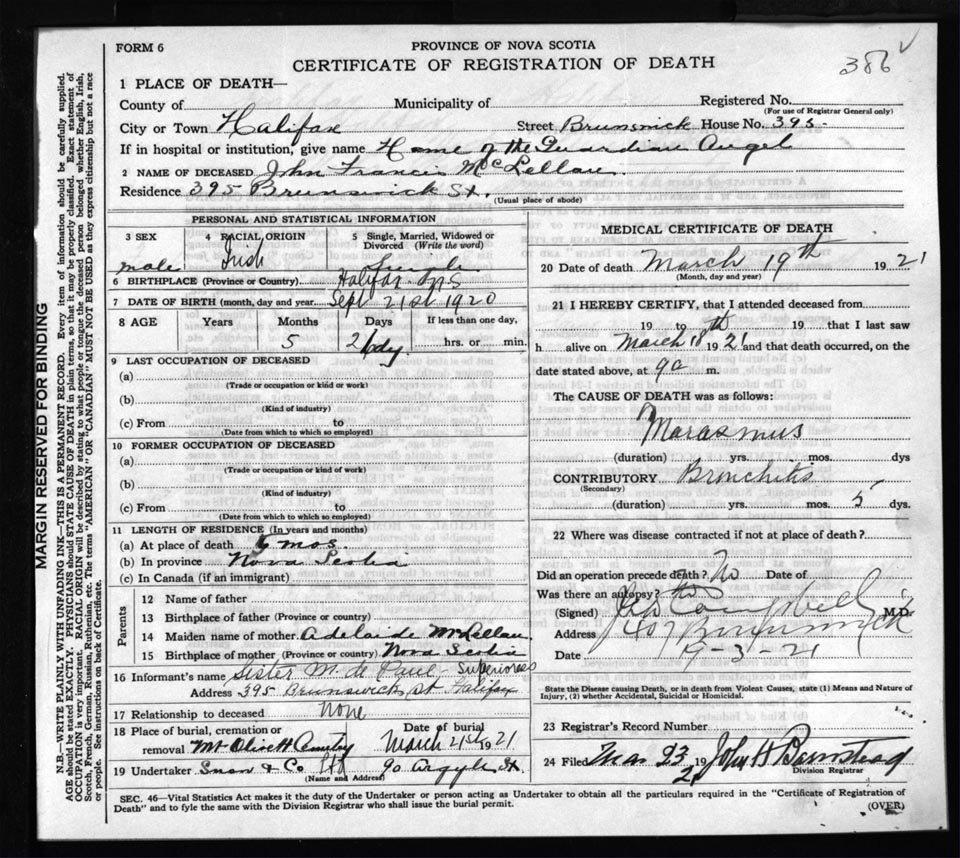 FORM 6
PROVINCE OF NOVA SCOTIA
CERTIFICATE OF REGISTRATION OF DEATH
386
1 PLACE OF DEATH—
County of Municipality of Registered No.
(For use of Registrar General only)
City or Town Halifax Street Brunswick House No. 395
If in hospital or institution, give name Home of the Guardian Angel
2 NAME OF DECEASED John Francis McLellan
Residence 395 Brunswick St.
(Usual place of abode)
PERSONAL AND STATISTICAL INFORMATION
3 SEX male
4 RACIAL ORIGIN Irish
5 Single, Married, Widowed or Divorced (Write the word) Single
6 BIRTHPLACE (Province or Country) Halifax N S
7 DATE OF BIRTH (month, day and year) Sept 21st 1920
8 AGE Years Months Days If less than one day,
5 26 dy. hrs. or min.
9 LAST OCCUPATION OF DECEASED
(a)
(Trade or occupation or kind of work)
(b)
(Kind of industry)
(c) From to
(Date from which to which so employed)
10 FORMER OCCUPATION OF DECEASED
(a)
(Trade or occupation or kind of work)
(b)
(Kind of industry)
(c) From to
(Date from which to which so employed)
11 LENGTH OF RESIDENCE (In years and months)
(a) At place of death mos.
(b) In province Nova Scotia
(c) In Canada (if an immigrant)
Parents
12 Name of father
13 Birthplace of father (Province or country)
14 Maiden name of mother Adelaide McLellan
15 Birthplace of mother (Province or country) Nova Scotia
16 Informant's name Sister M. de Paul Superioress
Address 395 Brunswick st Halifax
17 Relationship to deceased none
18 Place of burial, cremation or removal Mt Olivett Cemetry Date of burial March 21st 1921
19 Undertaker Snow & Co Ltd 90 Argyle St.
(Name and Address)
MEDICAL CERTIFICATE OF DEATH
20 Date of death March 19th 1921
(Month, day and year)
21 I HEREBY CERTIFY, that I attended deceased from
19 to 19 that I last saw
h alive on March 18th 1921 and that death occurred, on the
date stated above, at 9 a m.
The CAUSE OF DEATH was as follows:
Marasmus
(duration) yrs. mos. dys
CONTRIBUTORY Bronchitis
(Secondary)
(duration) yrs. mos. 5 dys.
22 Where was disease contracted if not at place of death?
Did an operation precede death? No Date of
Was there an autopsy? No
(Signed) Campbell M.D.
Address 407 Brunswick
Date 19-3-21
State the Disease causing Death, or in death from Violent Causes, state (1) Means and Nature of
Injury, (2) whether Accidental, Suicidal or Homicidal.
23 Registrar's Record Number
24 Filed Mar 23 1921 John H Barnstead
Division Registrar
SEC. 46—Vital Statistics Act makes it the duty of the Undertaker or person acting as Undertaker to obtain all the particulars required in the "Certificate of Registration of
Death" and to fyle the same with the Division Registrar who shall issue the burial permit.
(OVER)
MARGIN RESERVED FOR BINDING
N.B.—WRITE PLAINLY WITH UNFADING INK—THIS IS A PERMANENT RECORD. Every item of information should be carefully supplied.
AGE should be stated EXACTLY. PHYSICIANS should STATE CAUSE OF DEATH in plain terms, so that it may be properly classified. Exact statement of
OCCUPATION is very important. RACIAL ORIGIN will be described by stating to what people or tongue the deceased person belonged whether English, Irish,
Scotch, French, German, Russian, Ruthenian, etc. The terms "AMERICAN" OR "CANADIAN" MUST NOT BE USED as they express citizenship but not a race
or people. See instructions on back of Certificate.